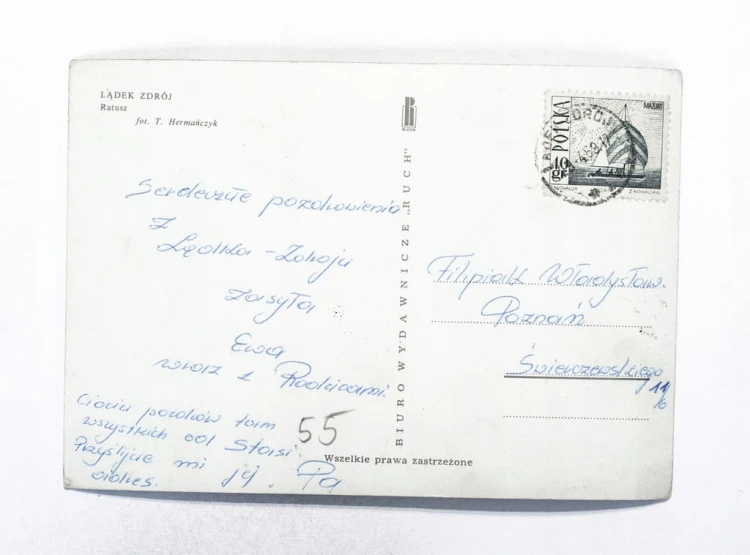 LĄDEK ZDRÓJ
Ratusz
fot. T. Hermańczyk
RUCH
BIURO WYDAWNICZE „RUCH"
Wszelkie prawa zastrzeżone
POLSKA
MAZURY
40 gr
Serdeczne pozdrowienia
z
Lądka-Zdroju
zasyła
Ewa
wraz z Rodzicami.
Ciociu pozdrów tam
wszystkich od Stasi.
Przyślijcie mi jej
adres. Pa
55
Filipiak Władysław.
Poznań
Świerczewskiego
11/6